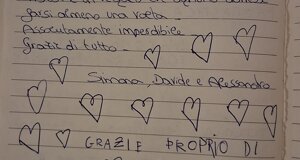 farsi almeno una volta
Assolutamente imperdibile
Grazie di tutto -
Simona, Davide e Alessandro
GRAZIE PROPRIO DI